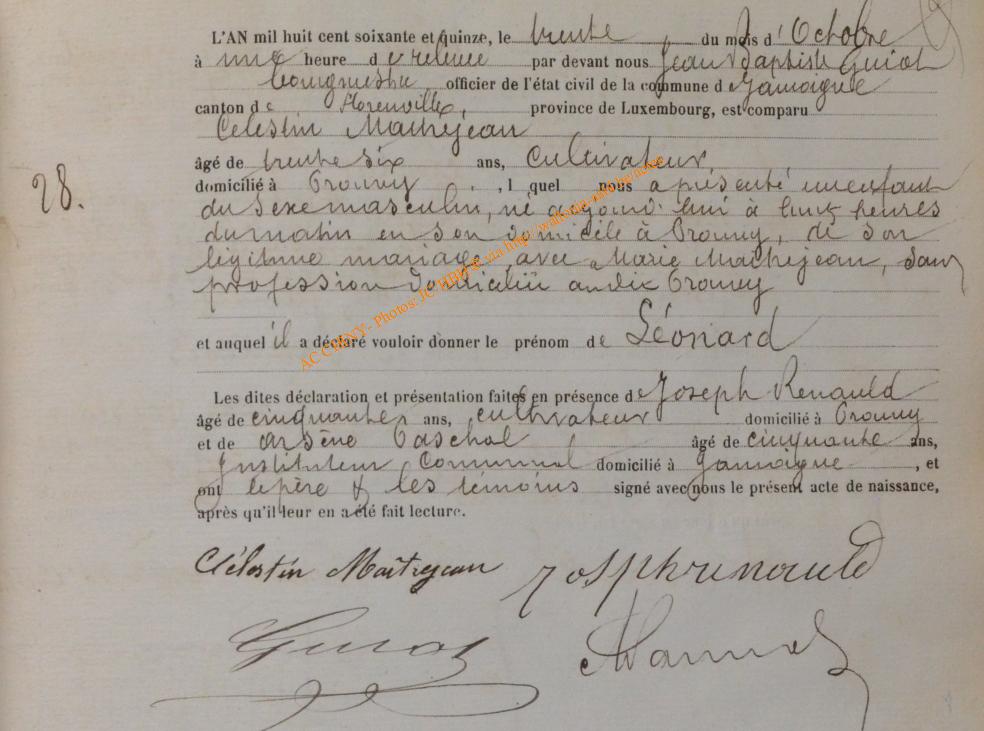 L'AN mil huit cent soixante et quinze, le trente du mois d'Octobre
à une heure de relevée par devant nous Jean Baptiste Guiot
bourgmestre officier de l'état civil de la commune de Jamoigne
canton de Florenville, province de Luxembourg, est comparu
Célestin Maitrejean
28.
âgé de trente six ans, Cultivateur
domicilié à Prouvy, lequel nous a présenté un enfant
du sexe masculin, né aujourd'hui à huit heures
du matin en son domicile à Prouvy, de son
légitime mariage avec Marie Maitrejean, sans
profession domiciliée audit Prouvy
et auquel il a déclaré vouloir donner le prénom de Léonard
AC CHINY - Photos: via http:
Les dites déclaration et présentation faites en présence de Joseph Renauld
âgé de cinquante ans, cultivateur domicilié à Prouvy
et de Arsène âgé de cinquante ans,
Instituteur Communal domicilié à Jamoigne, et
ont le père & les témoins signé avec nous le présent acte de naissance,
après qu'il leur en a été fait lecture.
Célestin Maitrejean Josph renauld
Guiot